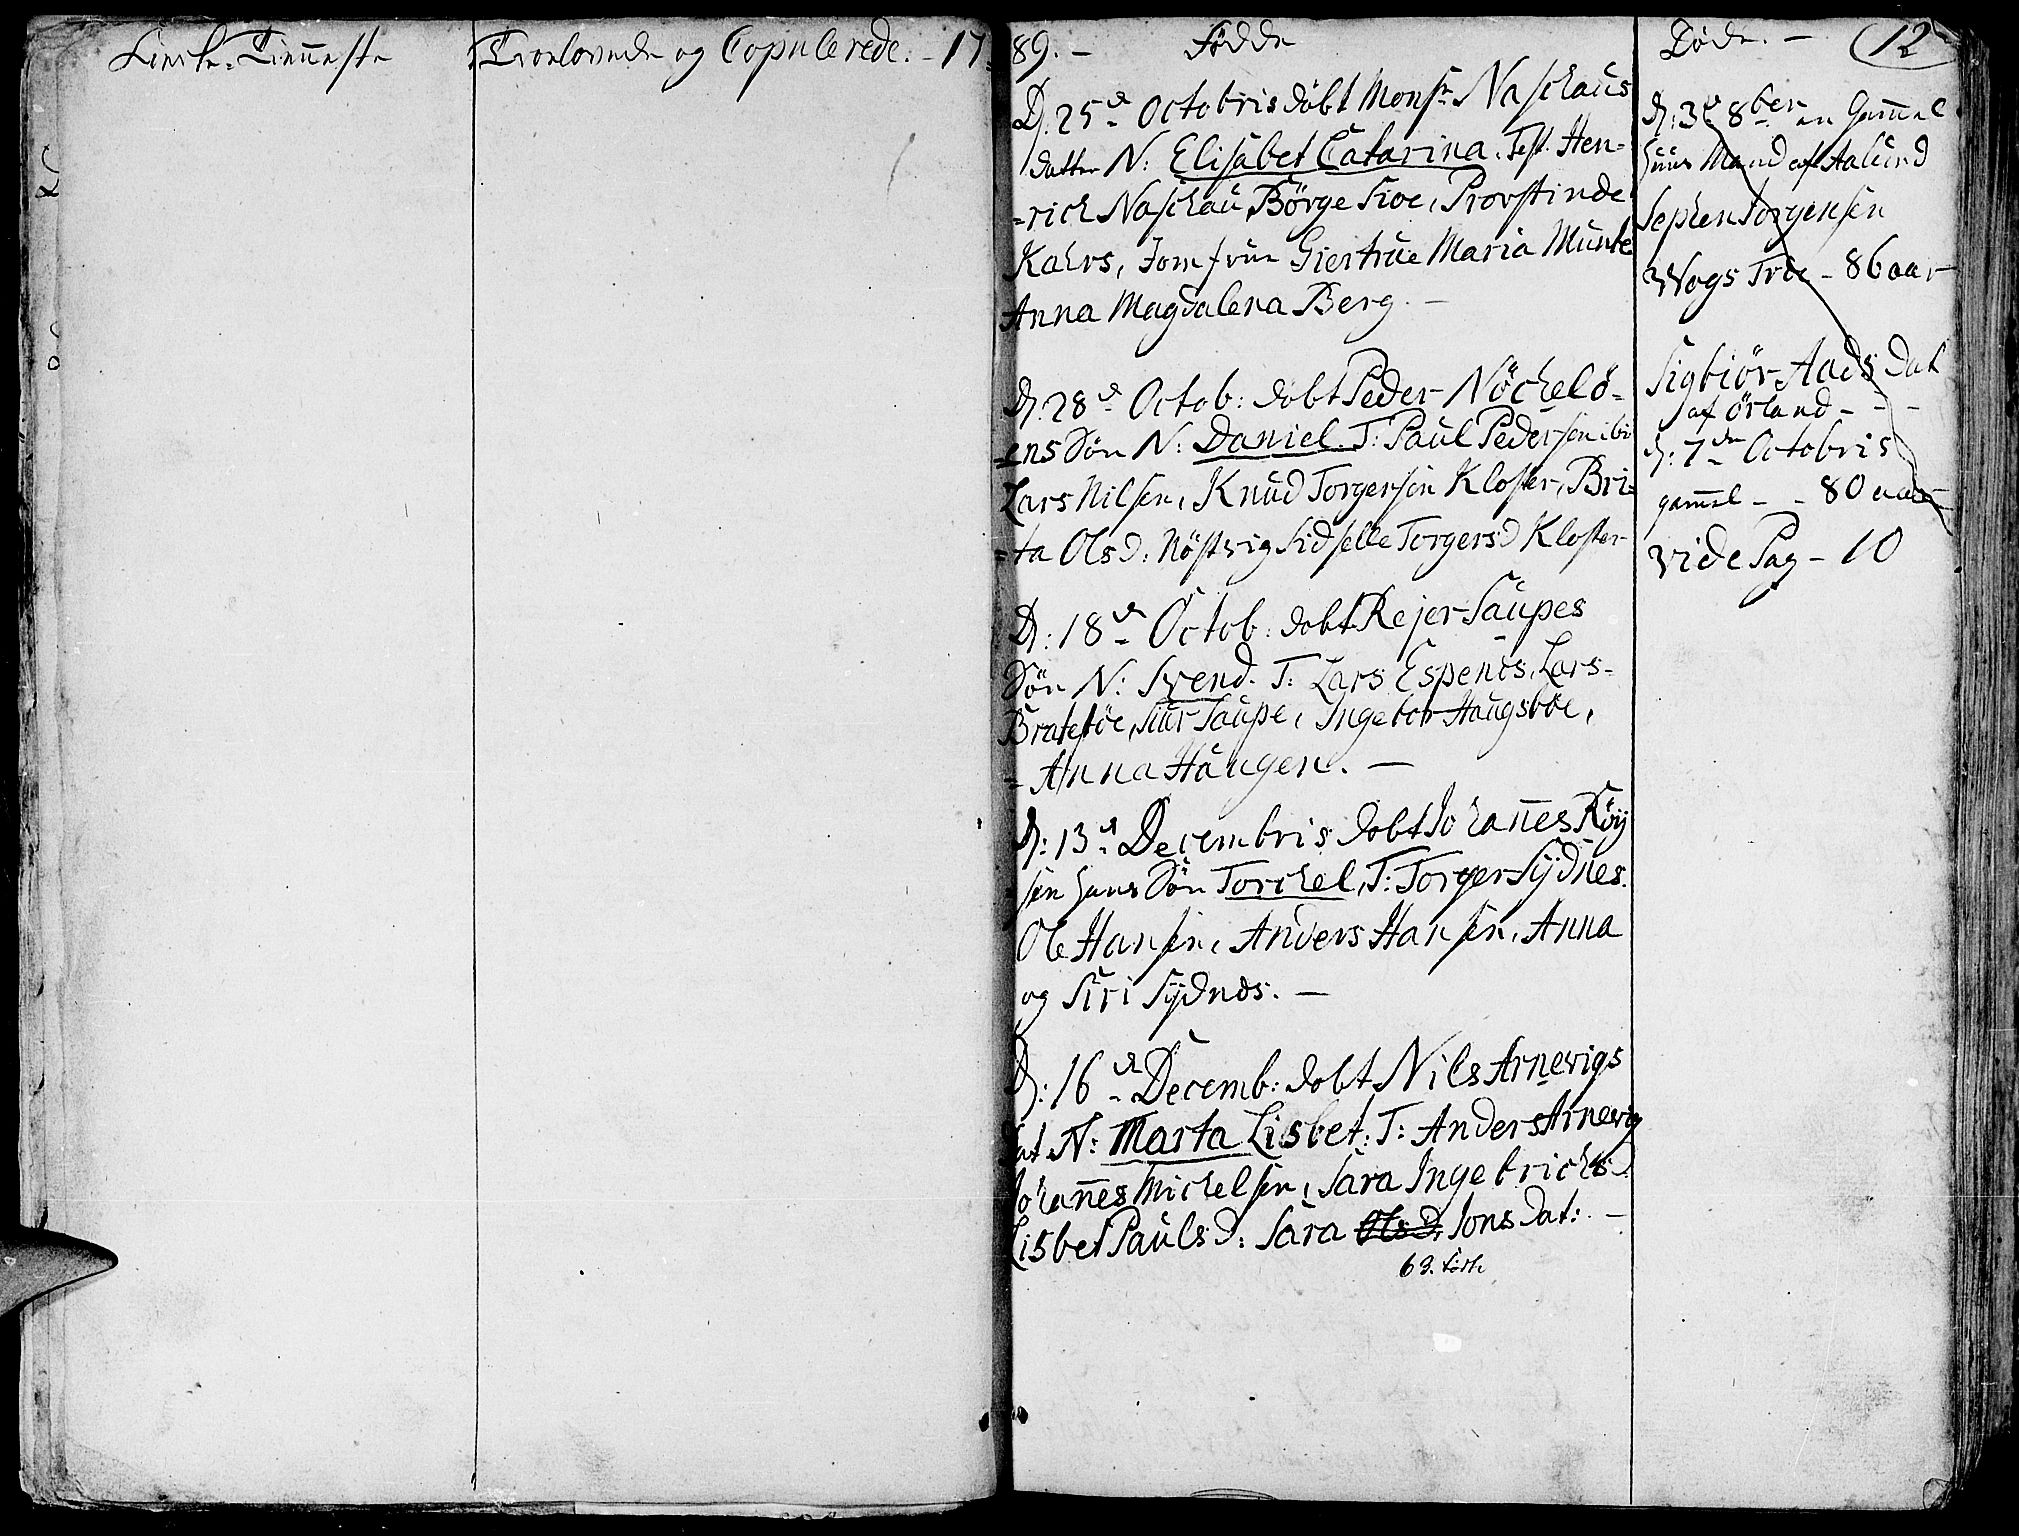 Kirke-Tienneste
Troelovede og Copulerede. - 17
89. - Födde
Döde. -
12
D. 25d Octobris döbt Monsr Naschaus
datter N: Elisabet Catarina. Test. Hen-
=rich Naschau, Börge Scoe, Provstinde
Kahrs, Jomfrue Giertrue Maria Munte
Anna Magdalena Berg. -
D. 28d Octob: döbt Peder Nöchelö-
=ens Sön N: Daniel. T: Paul Pedersen ibi
Lars Nilsen, Knud Torgersen Kloster, Bri=
=ta Olsd: Nöstvig Sidselle Torgersd Kloster
D: 18d Octob: dobt Rejer Saupes
Sön N: Svend. T: Lars Espenes, Lars-
Brateböe, Siur Saupe, Ingebor Haugsböe,
=Anna Haugen. -
D: 13d Decembris dobt Johannes Röy
sen hans Sön Torchel, T: Torger Sydnes.
Ole Hansen, Anders Hansen, Anna
og Siri Sydnes. -
D: 16d Decemb: dobt Nils Arnevigs
Dat N: Marta Lisbet: T: Anders Arnevig
Johannes Michelsen, Sara Ingebrichs.
Lisbet Paulsd: Sara Olsd. Jons Dat: -
63. födte
D: 3d 8ber en Gammel
Huus Mand af Aalund
Sephen Jorgensen
Wogs Troe - 86 aar
Sigbiör Aads Dat
af Örland - - -
D: 7de Octobris
gammel - - 80 aar
vide Pag - 10